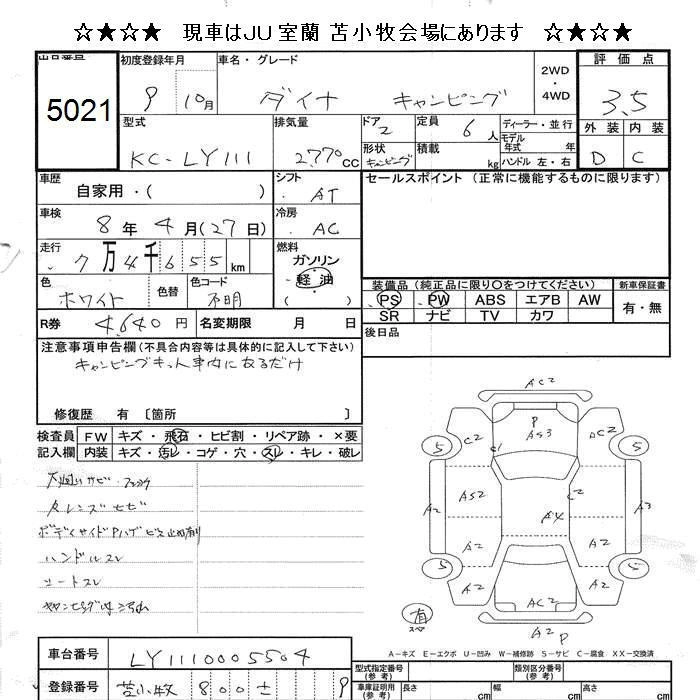 ☆★☆★ 現車はJU室蘭 苫小牧会場にあります ☆★☆★
出品番号
5021
初度登録年月
9 10月
車名・グレード
ダイナ キャンピング
2WD
・
4WD
評価点
3.5
外装 内装
D C
型式
KC-LY111
排気量
2,770cc
ドア
2
形状
キャンピング
定員
6人
積載
kg
ディーラー・並行
モデル
年式 年
ハンドル 左・右
車歴
自家用・( )
シフト
AT
セールスポイント (正常に機能するものに限ります)
車検
8年4月(27日)
冷房
AC
走行
7万4千655km
燃料
ガソリン
・
軽油
( )
色
ホワイト
色替
色コード
不明
装備品(純正品に限り○をつけてください)
PS PW ABS エアB AW
SR ナビ TV カワ
新車保証書
有・無
R券 4,640円
名変期限 月 日
後日品
注意事項申告欄(不具合内容等は具体的に記入して下さい)
キャンピングキット車内にあるだけ
修復歴 有〔箇所 〕
検査員
記入欄
FW キズ・飛石・ヒビ割・リペア跡・×要
内装 キズ・汚レ・コゲ・穴・スレ・キレ・破レ
ハンドルスレ
シートスレ
AC2
P
AS3
C2
C1
AC2
5
5
A2
AS2
C2
A4
A3
A2
A2
5
5
A2
A2
AC2
A2 P
有
スペア
A-キズ E-エクボ U-凹み W-補修跡 S-サビ C-腐食 XX-交換済
車台番号 LY1110005504
登録番号 苫小牧 800 さ 9
型式指定番号
(参考)
類別区分番号
(参考)
車庫証明用
(参考)
長さ cm
幅 cm
高さ cm